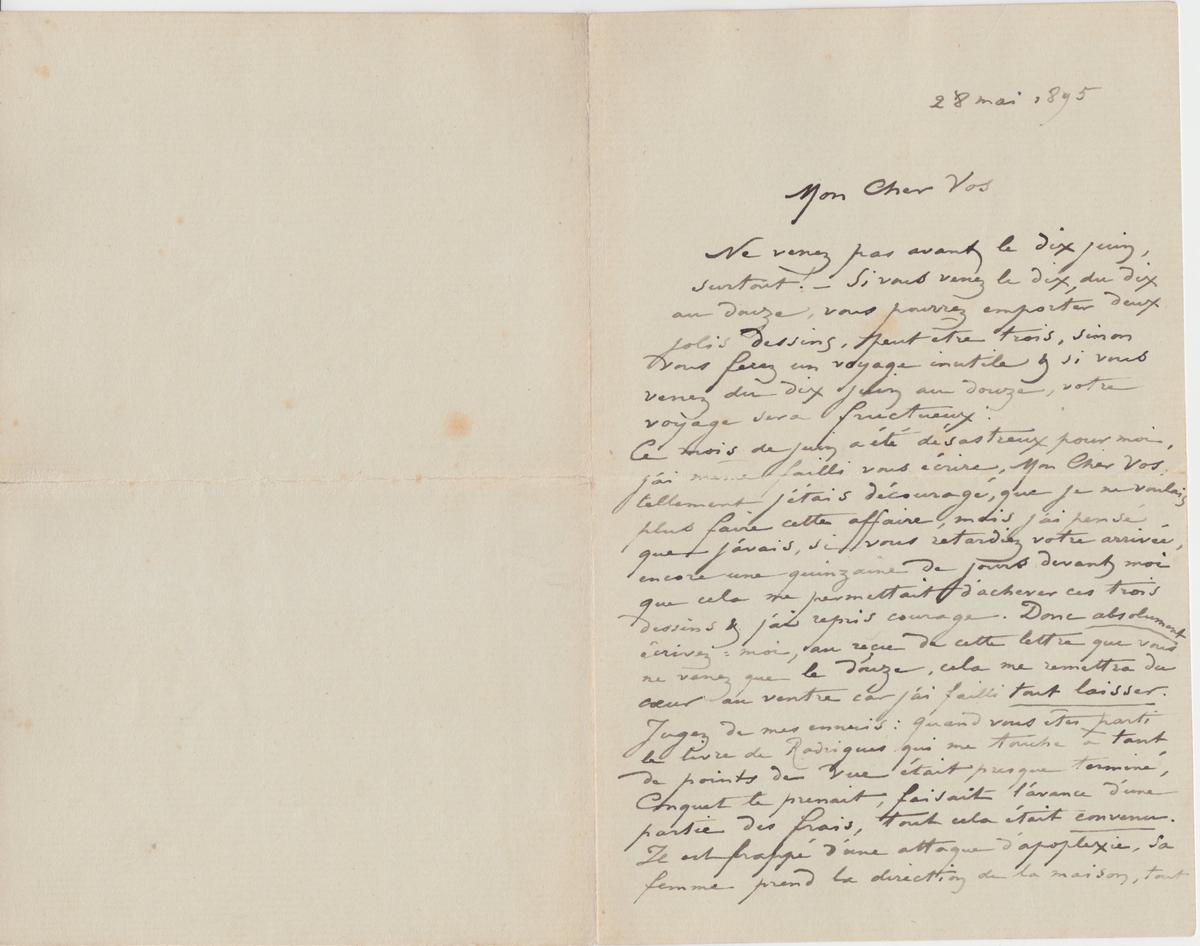 28 mai 1895
Mon Cher Vos
Ne venez pas avant le dix juin,
surtout! – Si vous venez le dix, du dix
au douze, vous pourrez emporter deux
jolis dessins, peut être trois, sinon
vous ferez un voyage inutile & si vous
venez du dix juin au douze, votre
voyage sera fructueux.
Ce mois de juin a été désastreux pour moi,
j'ai même failli vous écrire, Mon Cher Vos,
tellement j'étais découragé, que je ne voulais
plus faire cette affaire, mais j'ai pensé
que j'avais, si vous retardiez votre arrivée,
encore une quinzaine de jours devant moi
que cela me permettait d'achever ces trois
dessins & j'ai repris courage. Donc absolument
écrivez-moi, au reçu de cette lettre que vous
ne venez que le douze, cela me remettra du
cœur au ventre car j'ai failli tout laisser.
Jugez de mes ennuis : quand vous êtes parti
le livre de Rodrigues qui me touche à tant
de points de vue était presque terminé,
Conquet le prenait, faisait l'avance d'une
partie des frais, tout cela était convenu.
Il est frappé d'une attaque d'apoplexie, sa
femme prend la direction de la maison, tout